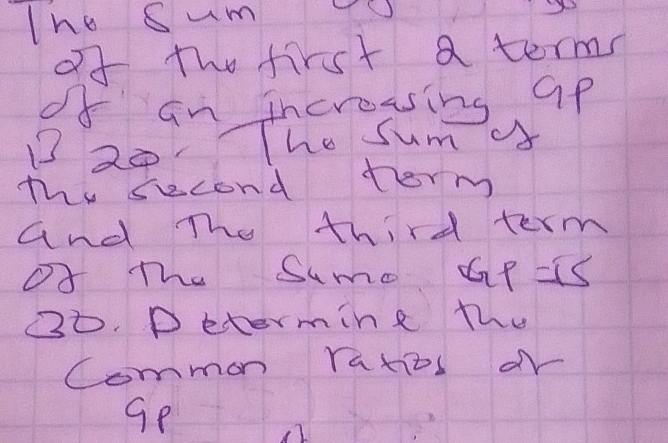 The Sum
of the first 2 terms
of an increasing GP
is 20. The sum of
the second term
and the third term
of the same GP is
30. Determine the
Common ratios of
GP